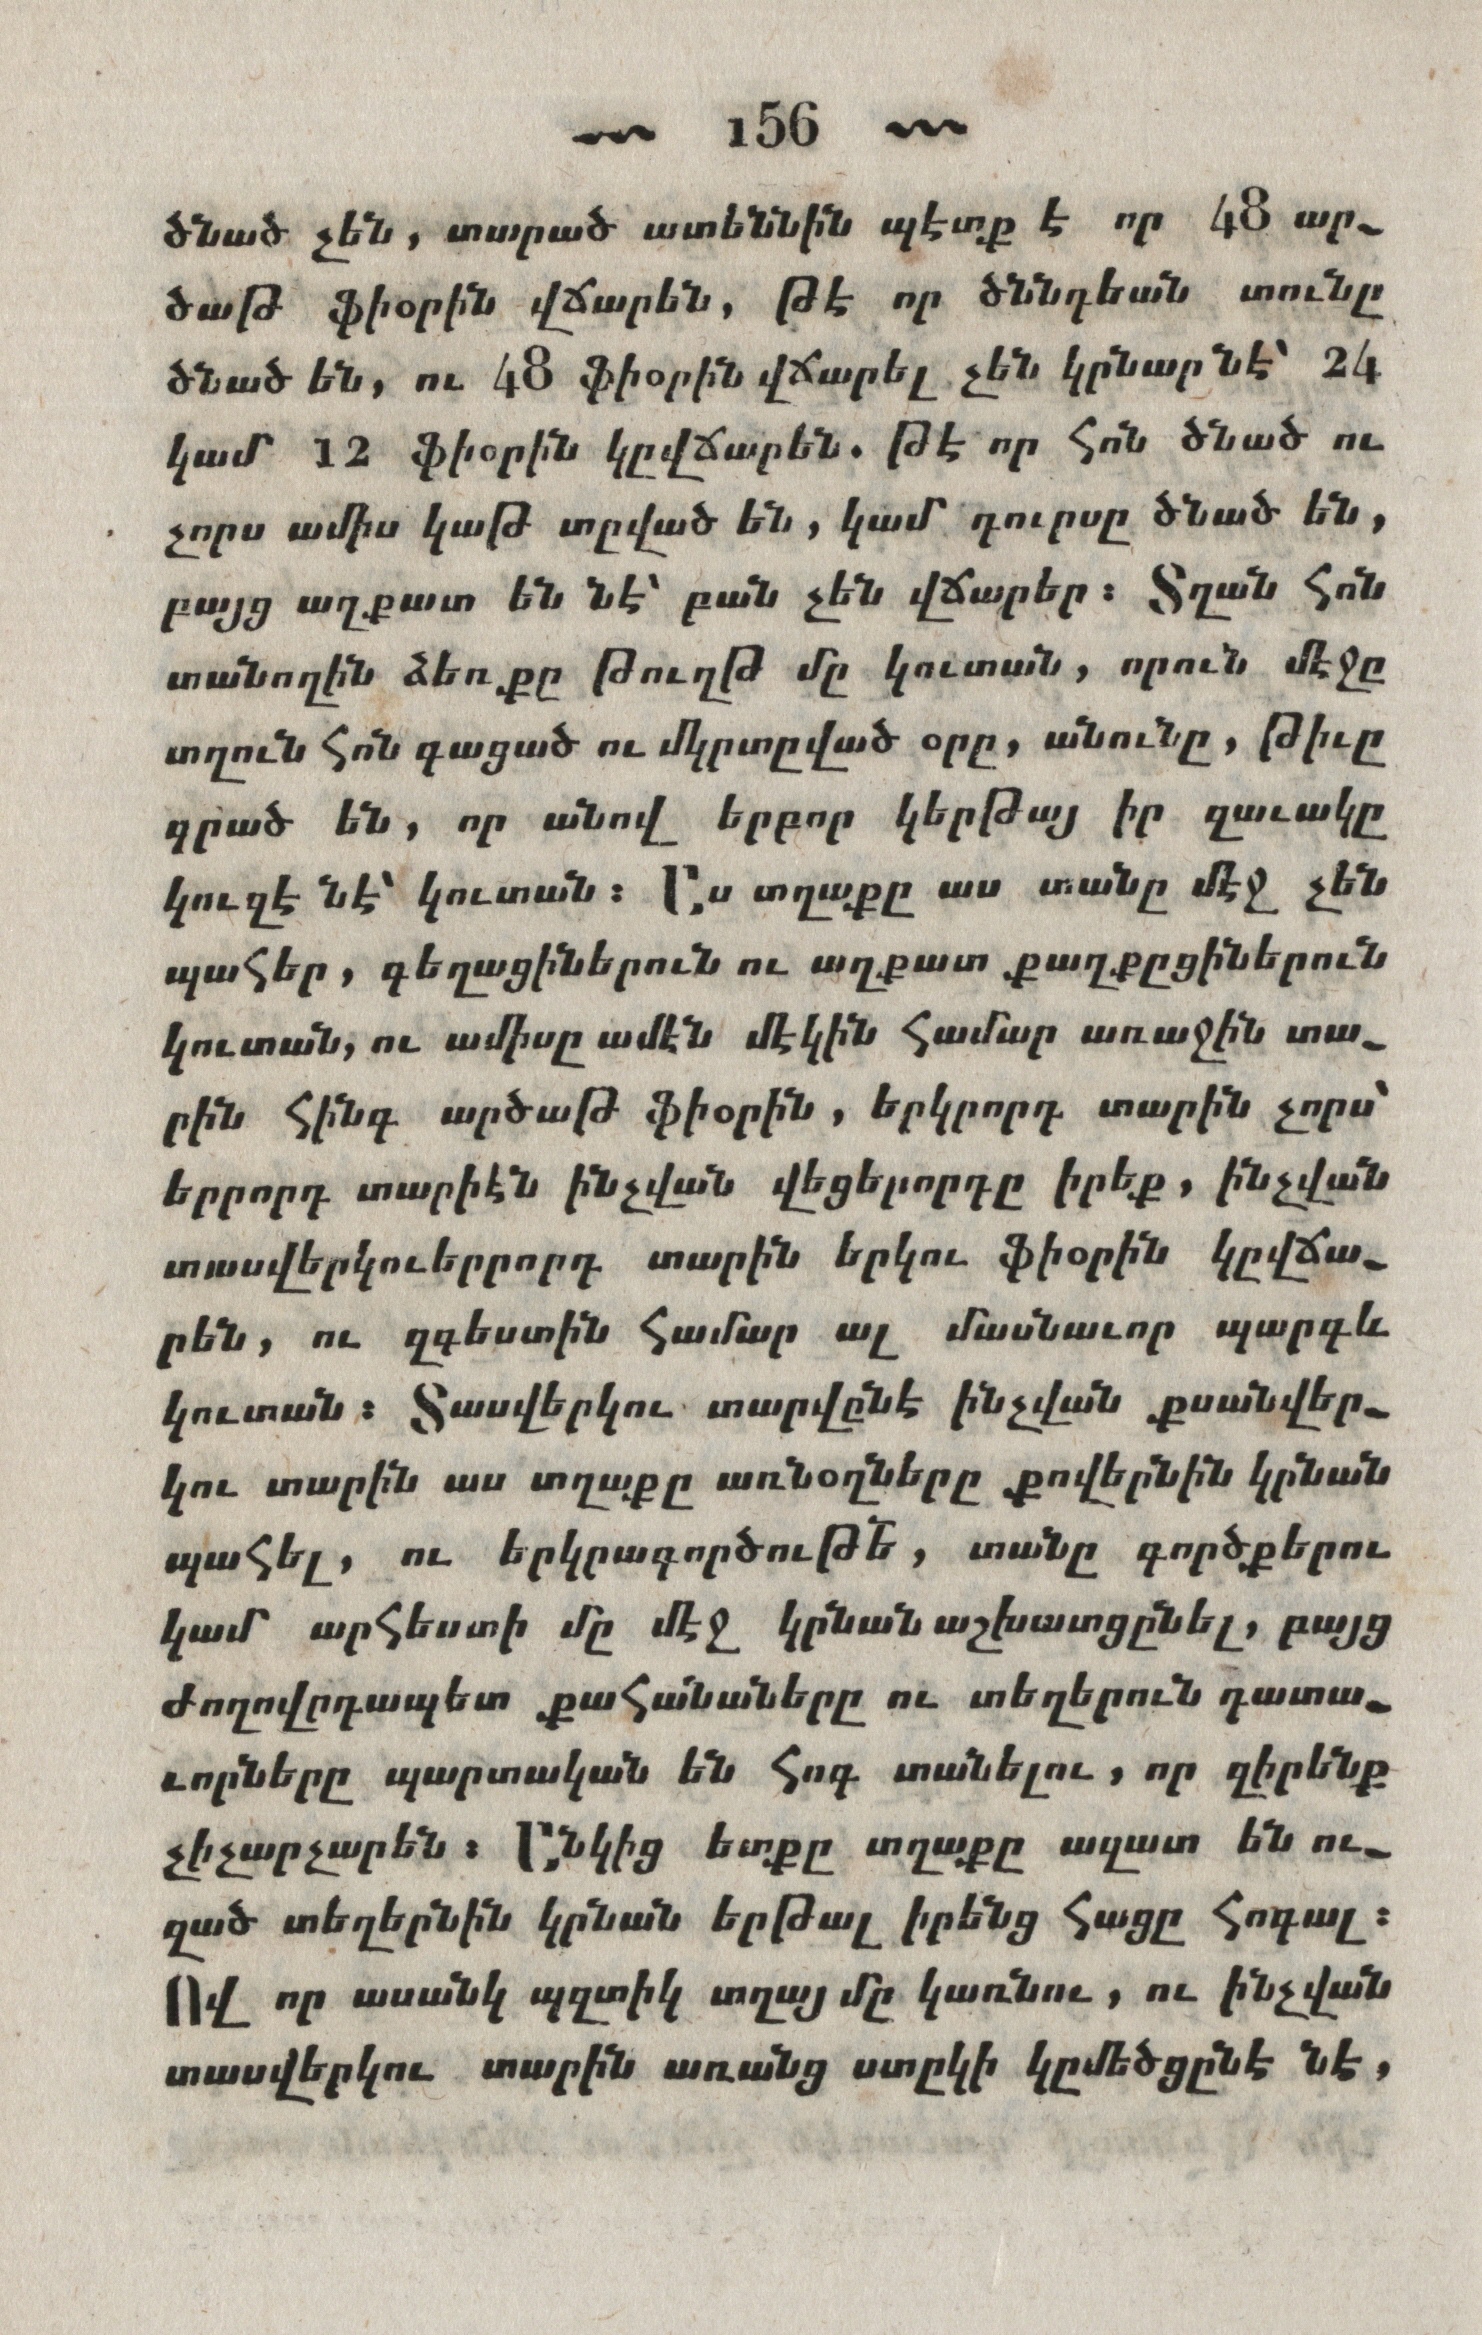 156
ծնած չեն, տարած ատեննին պէտք է որ 48 ար-
ծաթ ֆիօրին վճարեն, թէ որ ծննդեան տունը
ծնած են, ու 48 ֆիօրին վճարել չեն կրնար նէ՝ 24
կամ 12 ֆիօրին կըվճարեն. թէ որ հոն ծնած ու
չորս ամիս կաթ տըված են, կամ դուրսը ծնած են,
բայց աղքատ են նէ՝ բան չեն վճարեր։ Տղան հոն
տանողին ձեռքը թուղթ մը կուտան, որուն մէջը
տղուն հոն գացած ու մկրտըված օրը, անունը, թիւը
գրած են, որ անով երբոր կերթայ իր զաւակը
կուզէ նէ՝ կուտան։ Ըս տղաքը աս տանը մէջ չեն
պահեր, գեղացիներուն ու աղքատ քաղքըցիներուն
կուտան, ու ամիսը ամէն մէկին համար առաջին տա-
րին հինգ արծաթ ֆիօրին, երկրորդ տարին չորս՝
երրորդ տարիէն ինչվան վեցերորդը իրեք, ինչվան
տասվերկուերրորդ տարին երկու ֆիօրին կըվճա-
րեն, ու զգեստին համար ալ մասնաւոր պարգև
կուտան։ Տասվերկու տարվընէ ինչվան քսանվեր-
կու տարին աս տղաքը առնօղները քովերնին կրնան
պահել, ու երկրագործութե՟, տանը գործքերու
կամ արհեստի մը մէջ կրնան աշխատցընել, բայց
ժողովըդապետ քահանաները ու տեղերուն դատա-
ւորները պարտական են հոգ տանելու, որ զիրենք
չիչարչարեն։ Ընկից ետքը տղաքը ազատ են ու-
զած տեղերնին կրնան երթալ իրենց հացը հոգալ։
Ով որ ասանկ պզտիկ տղայ մը կառնու, ու ինչվան
տասվերկու տարին առանց ստըկի կըմեծցընէ նէ,